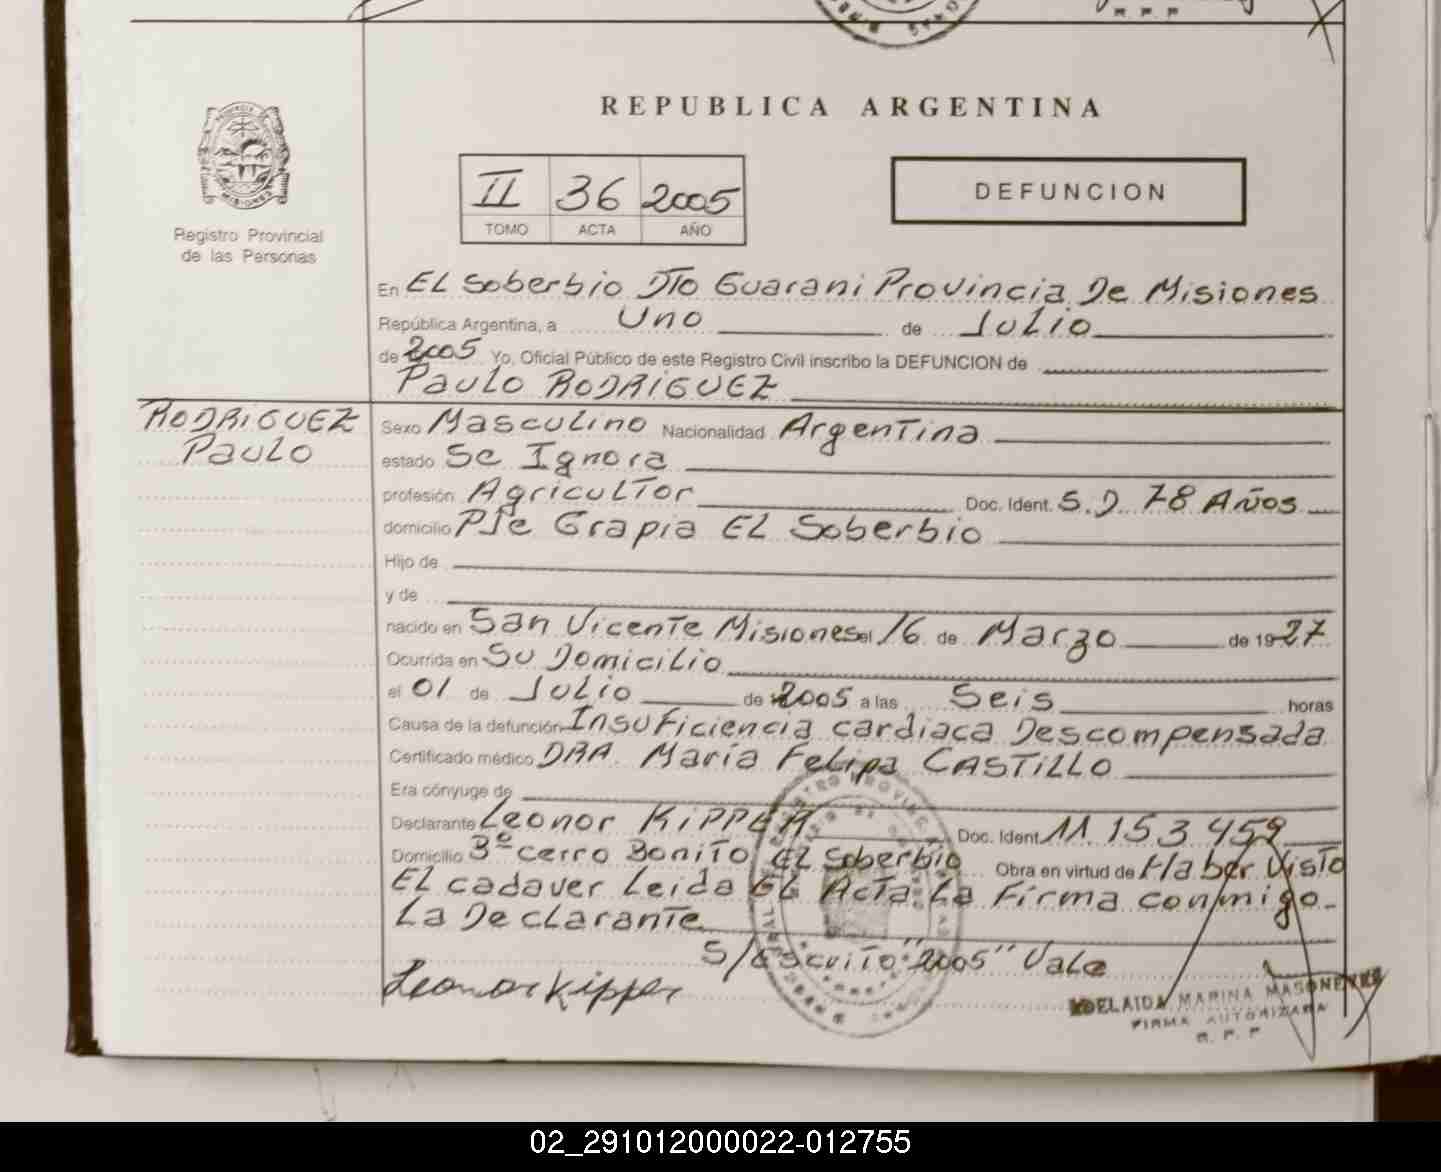 REPUBLICA ARGENTINA
II 36 2005
TOMO ACTA AÑO
DEFUNCION
Registro Provincial
de las Personas
En EL Soberbio DTo Guarani Provincia De Misiones
República Argentina, a Uno de Julio
de 2005 Yo, Oficial Público de este Registro Civil inscribo la DEFUNCION de
Paulo RODRIGUEZ
RODRIGUEZ
Paulo
Sexo Masculino Nacionalidad Argentina
estado Se Ignora
profesión Agricultor Doc. Ident. S.D. 78 Años
domicilio PJe Grapia EL Soberbio
Hijo de
y de
nacido en San Vicente Misiones el 16 de Marzo de 1927
Ocurrida en Su Domicilio
el 01 de Julio de 2005 a las Seis horas
Causa de la defunción Insuficiencia cardiaca Descompensada
Certificado médico DRA. María Felipa CASTILLO
Era cónyuge de
Declarante Leonor KIPPER Doc. Ident. 11.153.459
Domicilio 3º cerro Bonito EL Soberbio Obra en virtud de Haber Visto
EL cadaver Leida EL Acta La Firma conmigo-
La Declarante
S/escrito: "2005" Vale
Leonor Kipper
ADELAIDA MARINA
FIRMA AUTORIZADA
R. P. P
02_291012000022-012755